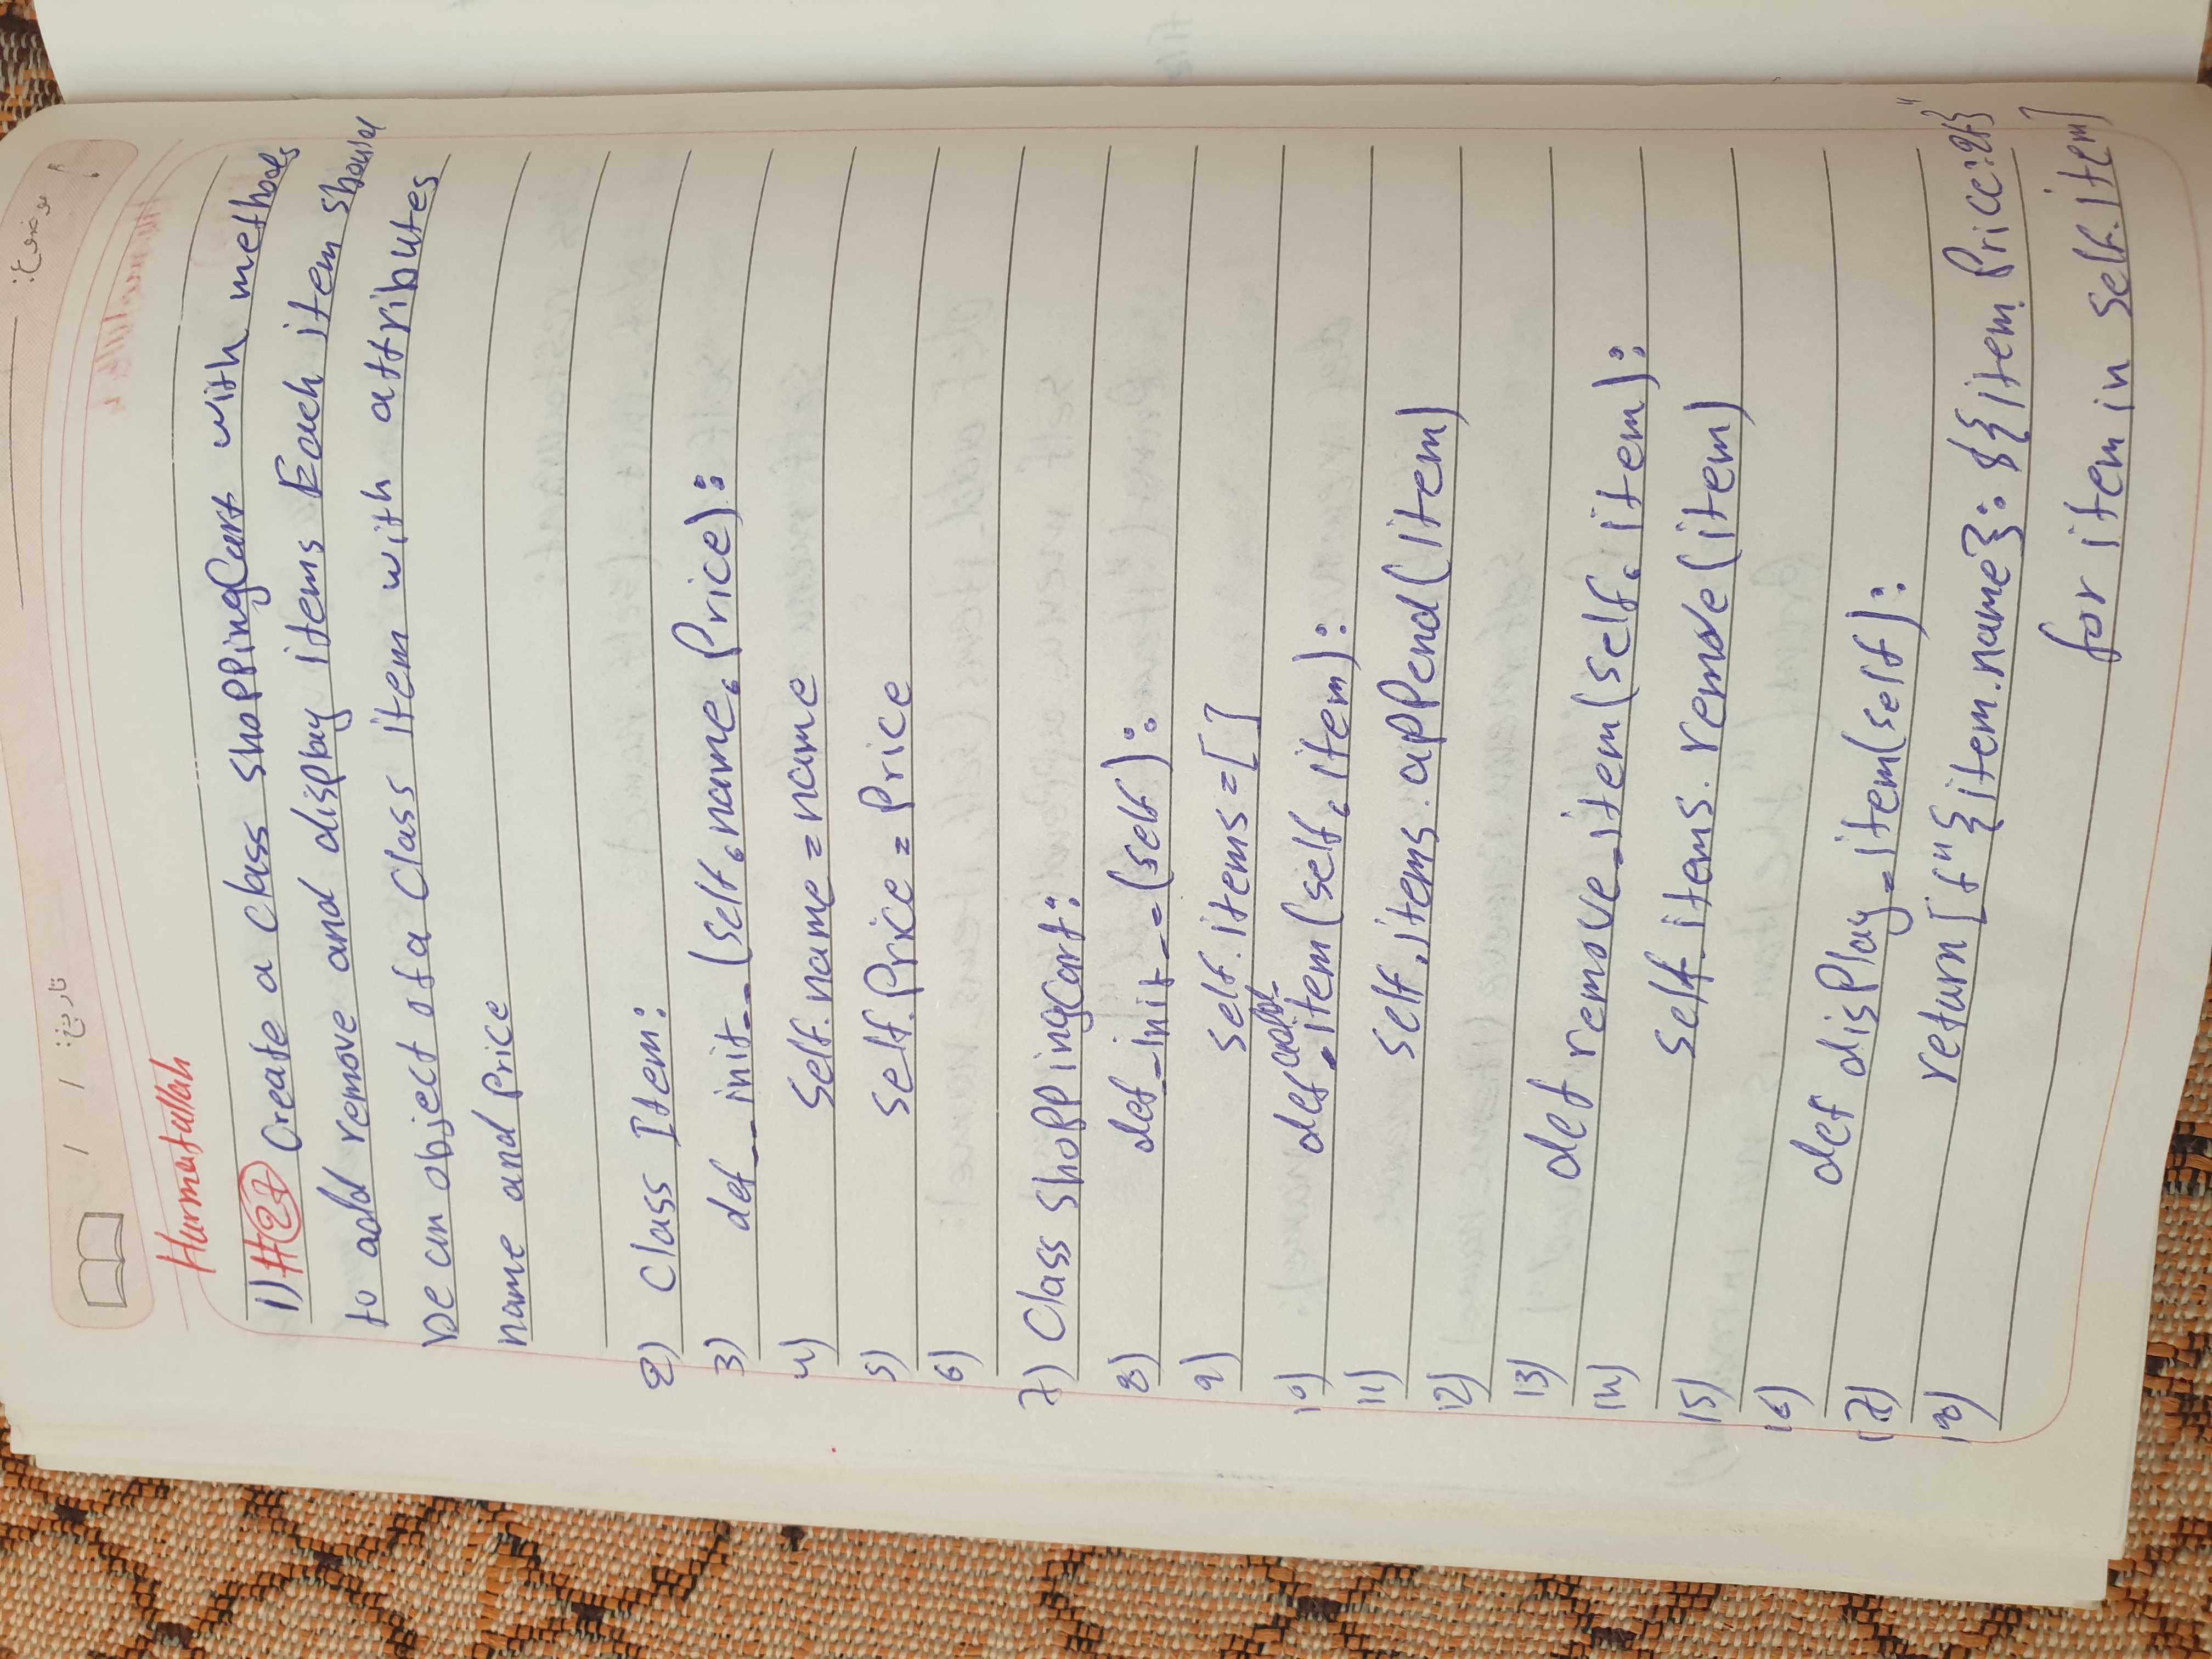 موضوع:
تاریخ: / /
Hurmatullah
1) #27 Create a class shoppingCart with methods
to add remove and display items Each item should
be an object of a class item with attributes
name and price
2) Class Item:
3) def __init__(self,name,Price):
4) self.name=name
5) self.Price=Price
6)
7) Class shoppingCart:
8) def __init__(self):
9) self.items=[]
10) def add_item(self,item):
11) self.items.append(item)
12)
13) def remove_item(self,item):
14) self.items.remove(item)
15)
16) def display_item(self):
17) return [f"{item.name}: ${item.Price:2f}"
18) for item in self.item]